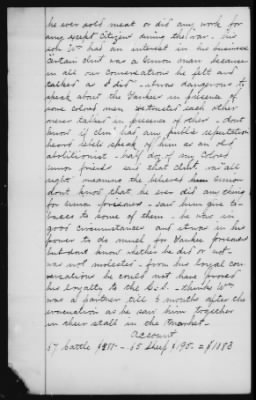 he ever sold meat or did any work for
any except Citizens during the war - his
son Wm had an interest in his business
certain Clint was a Union man because
in all our conversations he felt and
talked as I did - always dangerous to
speak about the Yankees in presence of
some colored men distrusted each other
never talked in presence of other - dont
know if Clint had any public reputation
heard rebels speak of him as an old
abolitionist - half doz of my Colored
Union friends said that Clint was all
right meaning the believed him Union
dont know that he ever did any thing
for Union prisoners - saw him give to-
bacco to some of them - he was in
good circumstances and it was in his
power to do much for Yankee prisoners
but dont know whether he did or not -
was not molested - from his loyal con-
versations he could not have proved
his loyalty to the C.S. - thinks Wm
was a partner till 6 months after the
evacuation as he saw him together
in their stall in the market -
Account
57 Cattle - 65 Sheep $195. = $1053